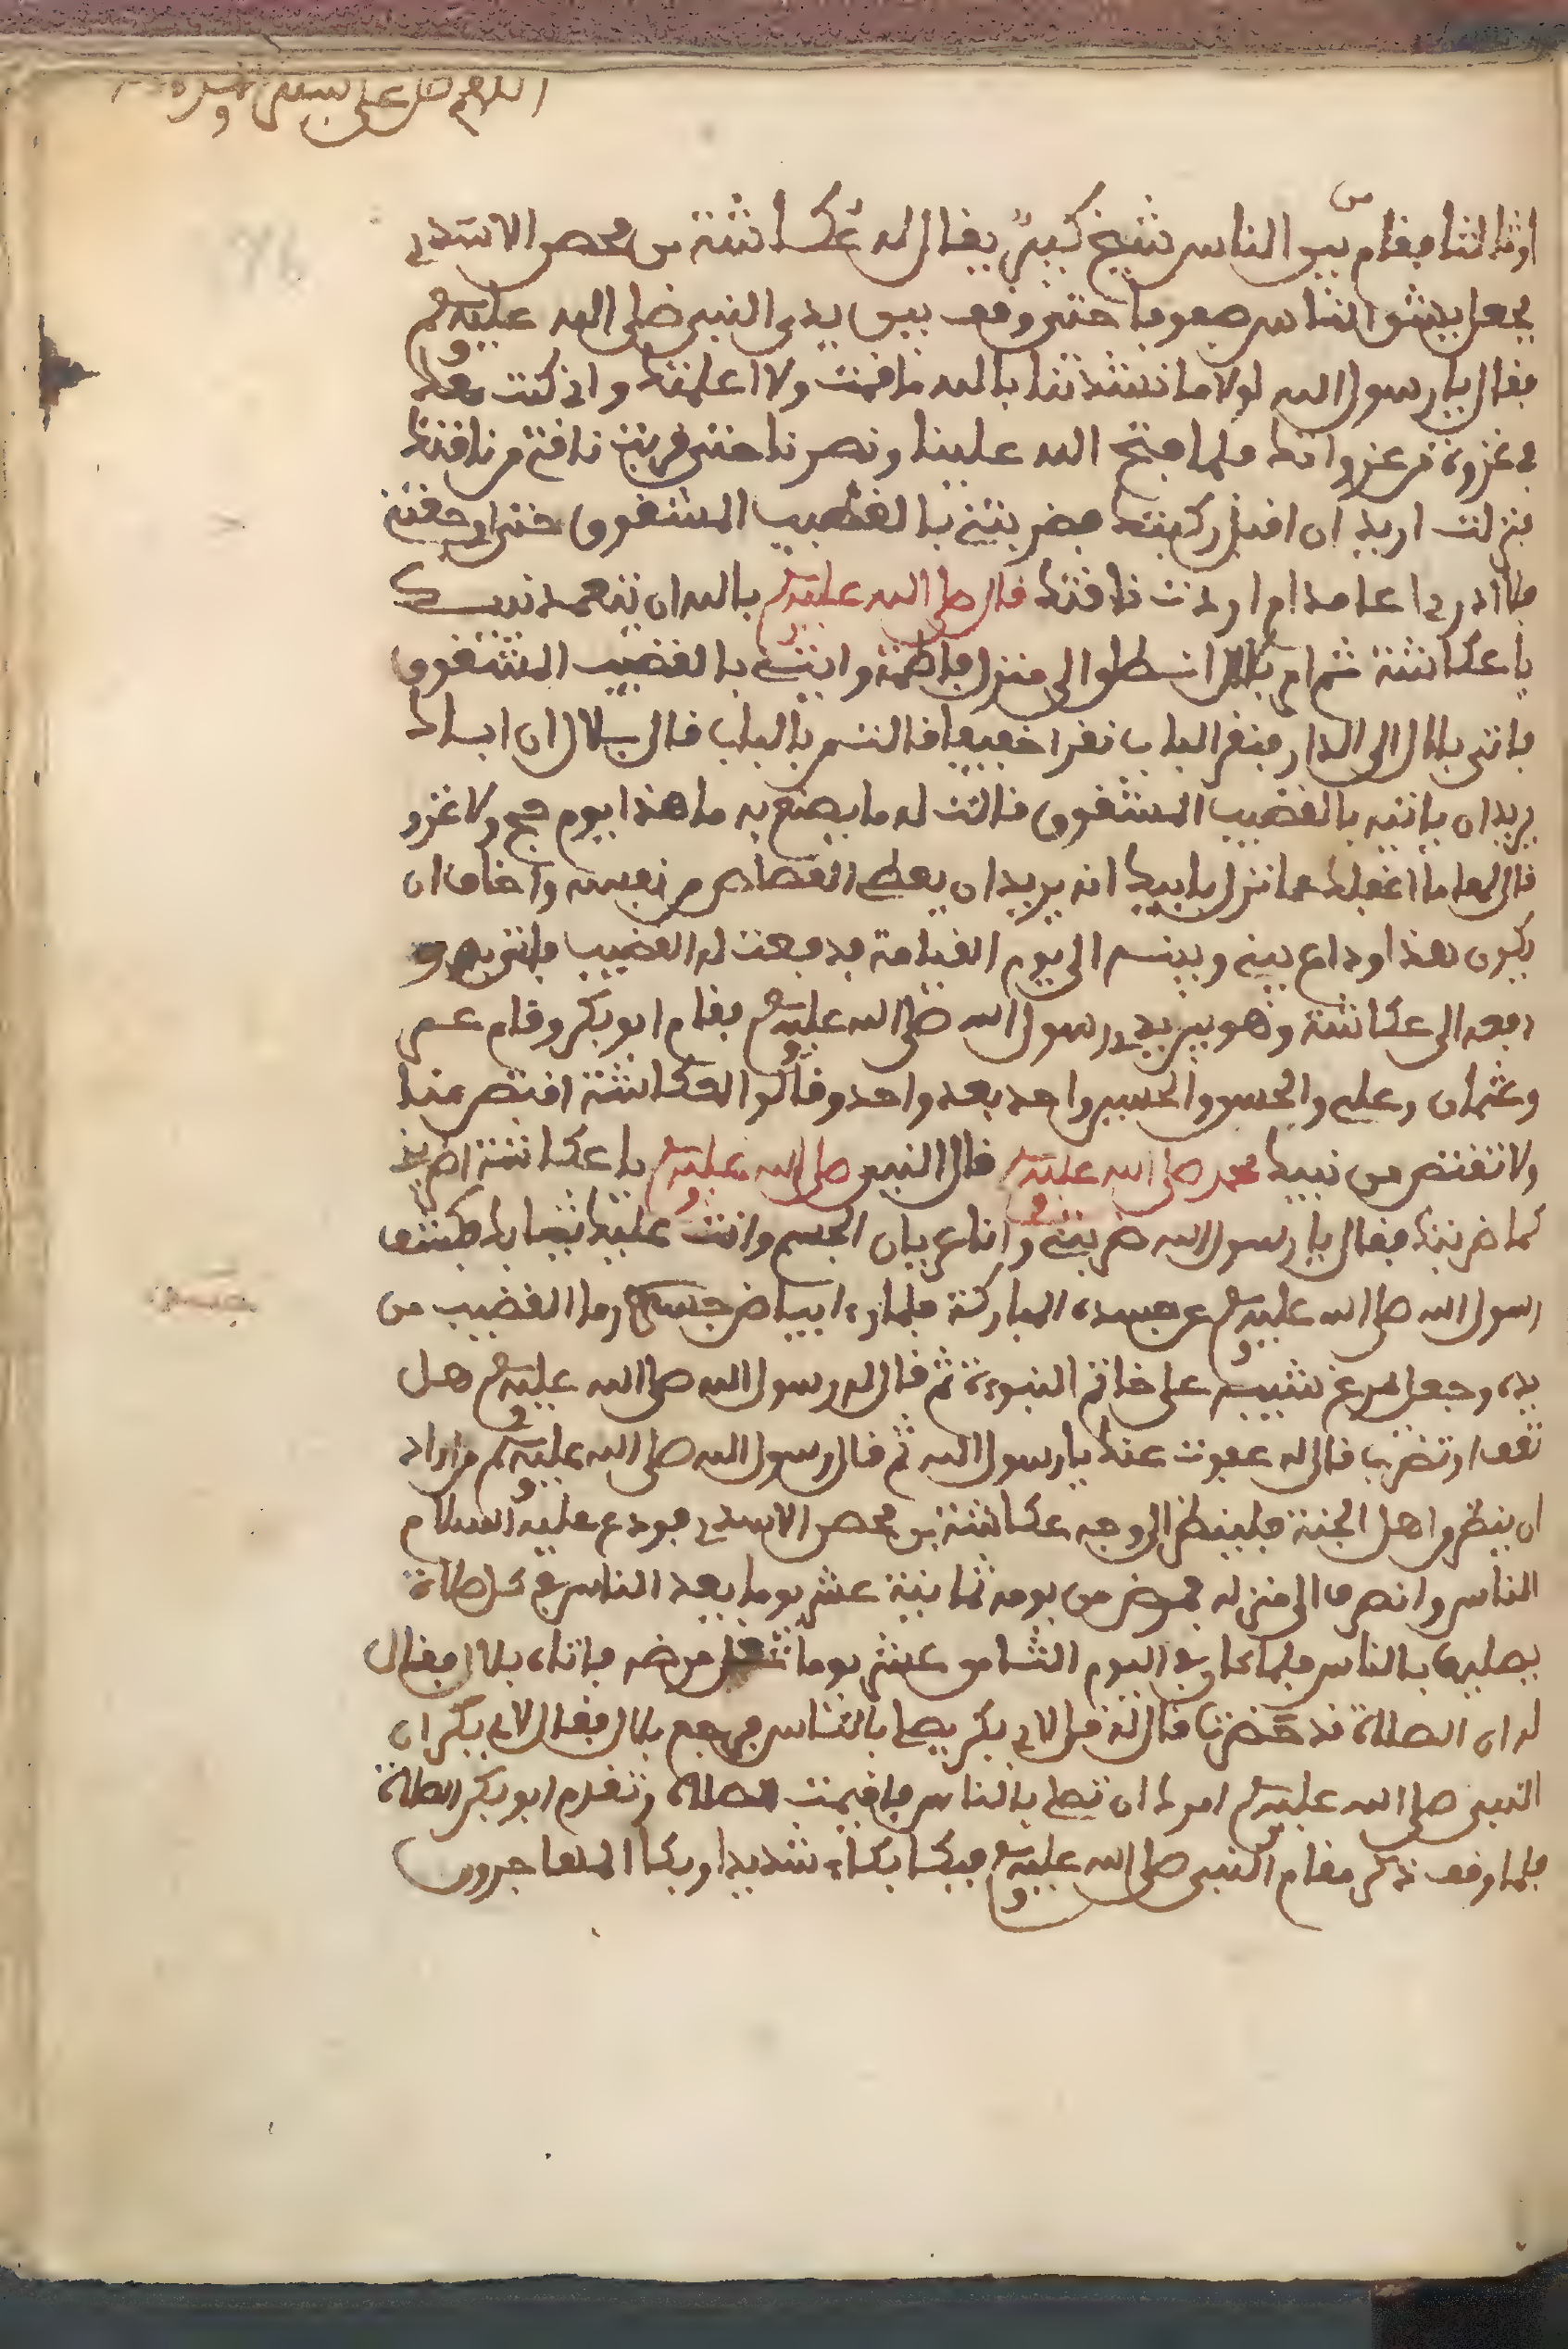 اللهم صل على سيدنا
اوثالثا فقام من بين الناس شيخ كبير يقال له عكاشة بن محصن الاسدي
فجعل يشق الناس صفوفا حتى وقف بين يدي النبي صلى الله عليه وسلم
فقال يا رسول الله لولا ما نشدتنا بالله ما قمت ولا اعلمتك واني كنت معك
في غزوة من غزواتك فلما فتح الله علينا ونصرنا حتى قربت ناقتي من ناقتك
فنزلت اريد ان اقبل ركبتك فضربتني بالقضيب الممشوق حتى اوجعتني
فلا ادري اعامدا ام اردت ناقتك قال صلى الله عليه وسلم بالله ان يتعمد نبيك
يا عكاشة ثم امر بلال انطلق الى منزل فاطمة وايتني بالقضيب الممشوق
فاتى بلال الى الدار فنقر الباب نقرا خفيفا قالت من بالباب قال بلال ان اباك
يريد ان ياتيه بالقضيب الممشوق قالت له ما يصنع به ما هذا يوم حج ولا غزو
قال لها ما اغفلك عما نزل بابيك انه يريد ان يعطي القصاص من نفسه واخاف ان
يكون هذا وداع بيني وبينه الى يوم القيامة فدفعت له القضيب فاتى به و
دفعه الى عكاشة وهو بين يدي رسول الله صلى الله عليه وسلم فقام ابو بكر وقام عمر
وعثمان وعلي والحسن والحسين واحد بعد واحد وقالوا لعكاشة اقتص منا
ولا تقتص من نبيك محمد صلى الله عليه وسلم قال النبي صلى الله عليه وسلم يا عكاشة اضربني
كما ضربتك فقال يا رسول الله ضربتني وانا عريان الجسم وانت عليك ثيابك فكشف
رسول الله صلى الله عليه وسلم عن جسده المباركة فلما رءا بياض جسده رما القضيب من
يده وجعل يمرغ شيبه على خاتم النبوءة ثم قال له رسول الله صلى الله عليه وسلم هل
تعف او تضرب قال له عفوت عنك يا رسول الله ثم قال رسول الله صلى الله عليه وسلم من اراد
ان ينظر اهل الجنة فلينظر الى وجه عكاشة بن محصن الاسدي فودع عليه السلام
الناس وانصرف الى منزله فمرض من يومه ثمانية عشر يوما يعد الناس في كل صلاة
يصليها بالناس فلما كان في اليوم الثامن عشر يوما ثقل مرضه فاتاه بلال فقال
له ان الصلاة قد حضرت قال له قل لابي بكر يصل بالناس فرجع بلال فقال لابي بكر ان
النبي صلى الله عليه وسلم امرك ان تصل بالناس فاقيمت الصلاة وتقدم ابو بكر الصلاة
فلما وقف ذكر مقام النبي صلى الله عليه وسلم فبكا بكاء شديدا وبكا المهاجرون